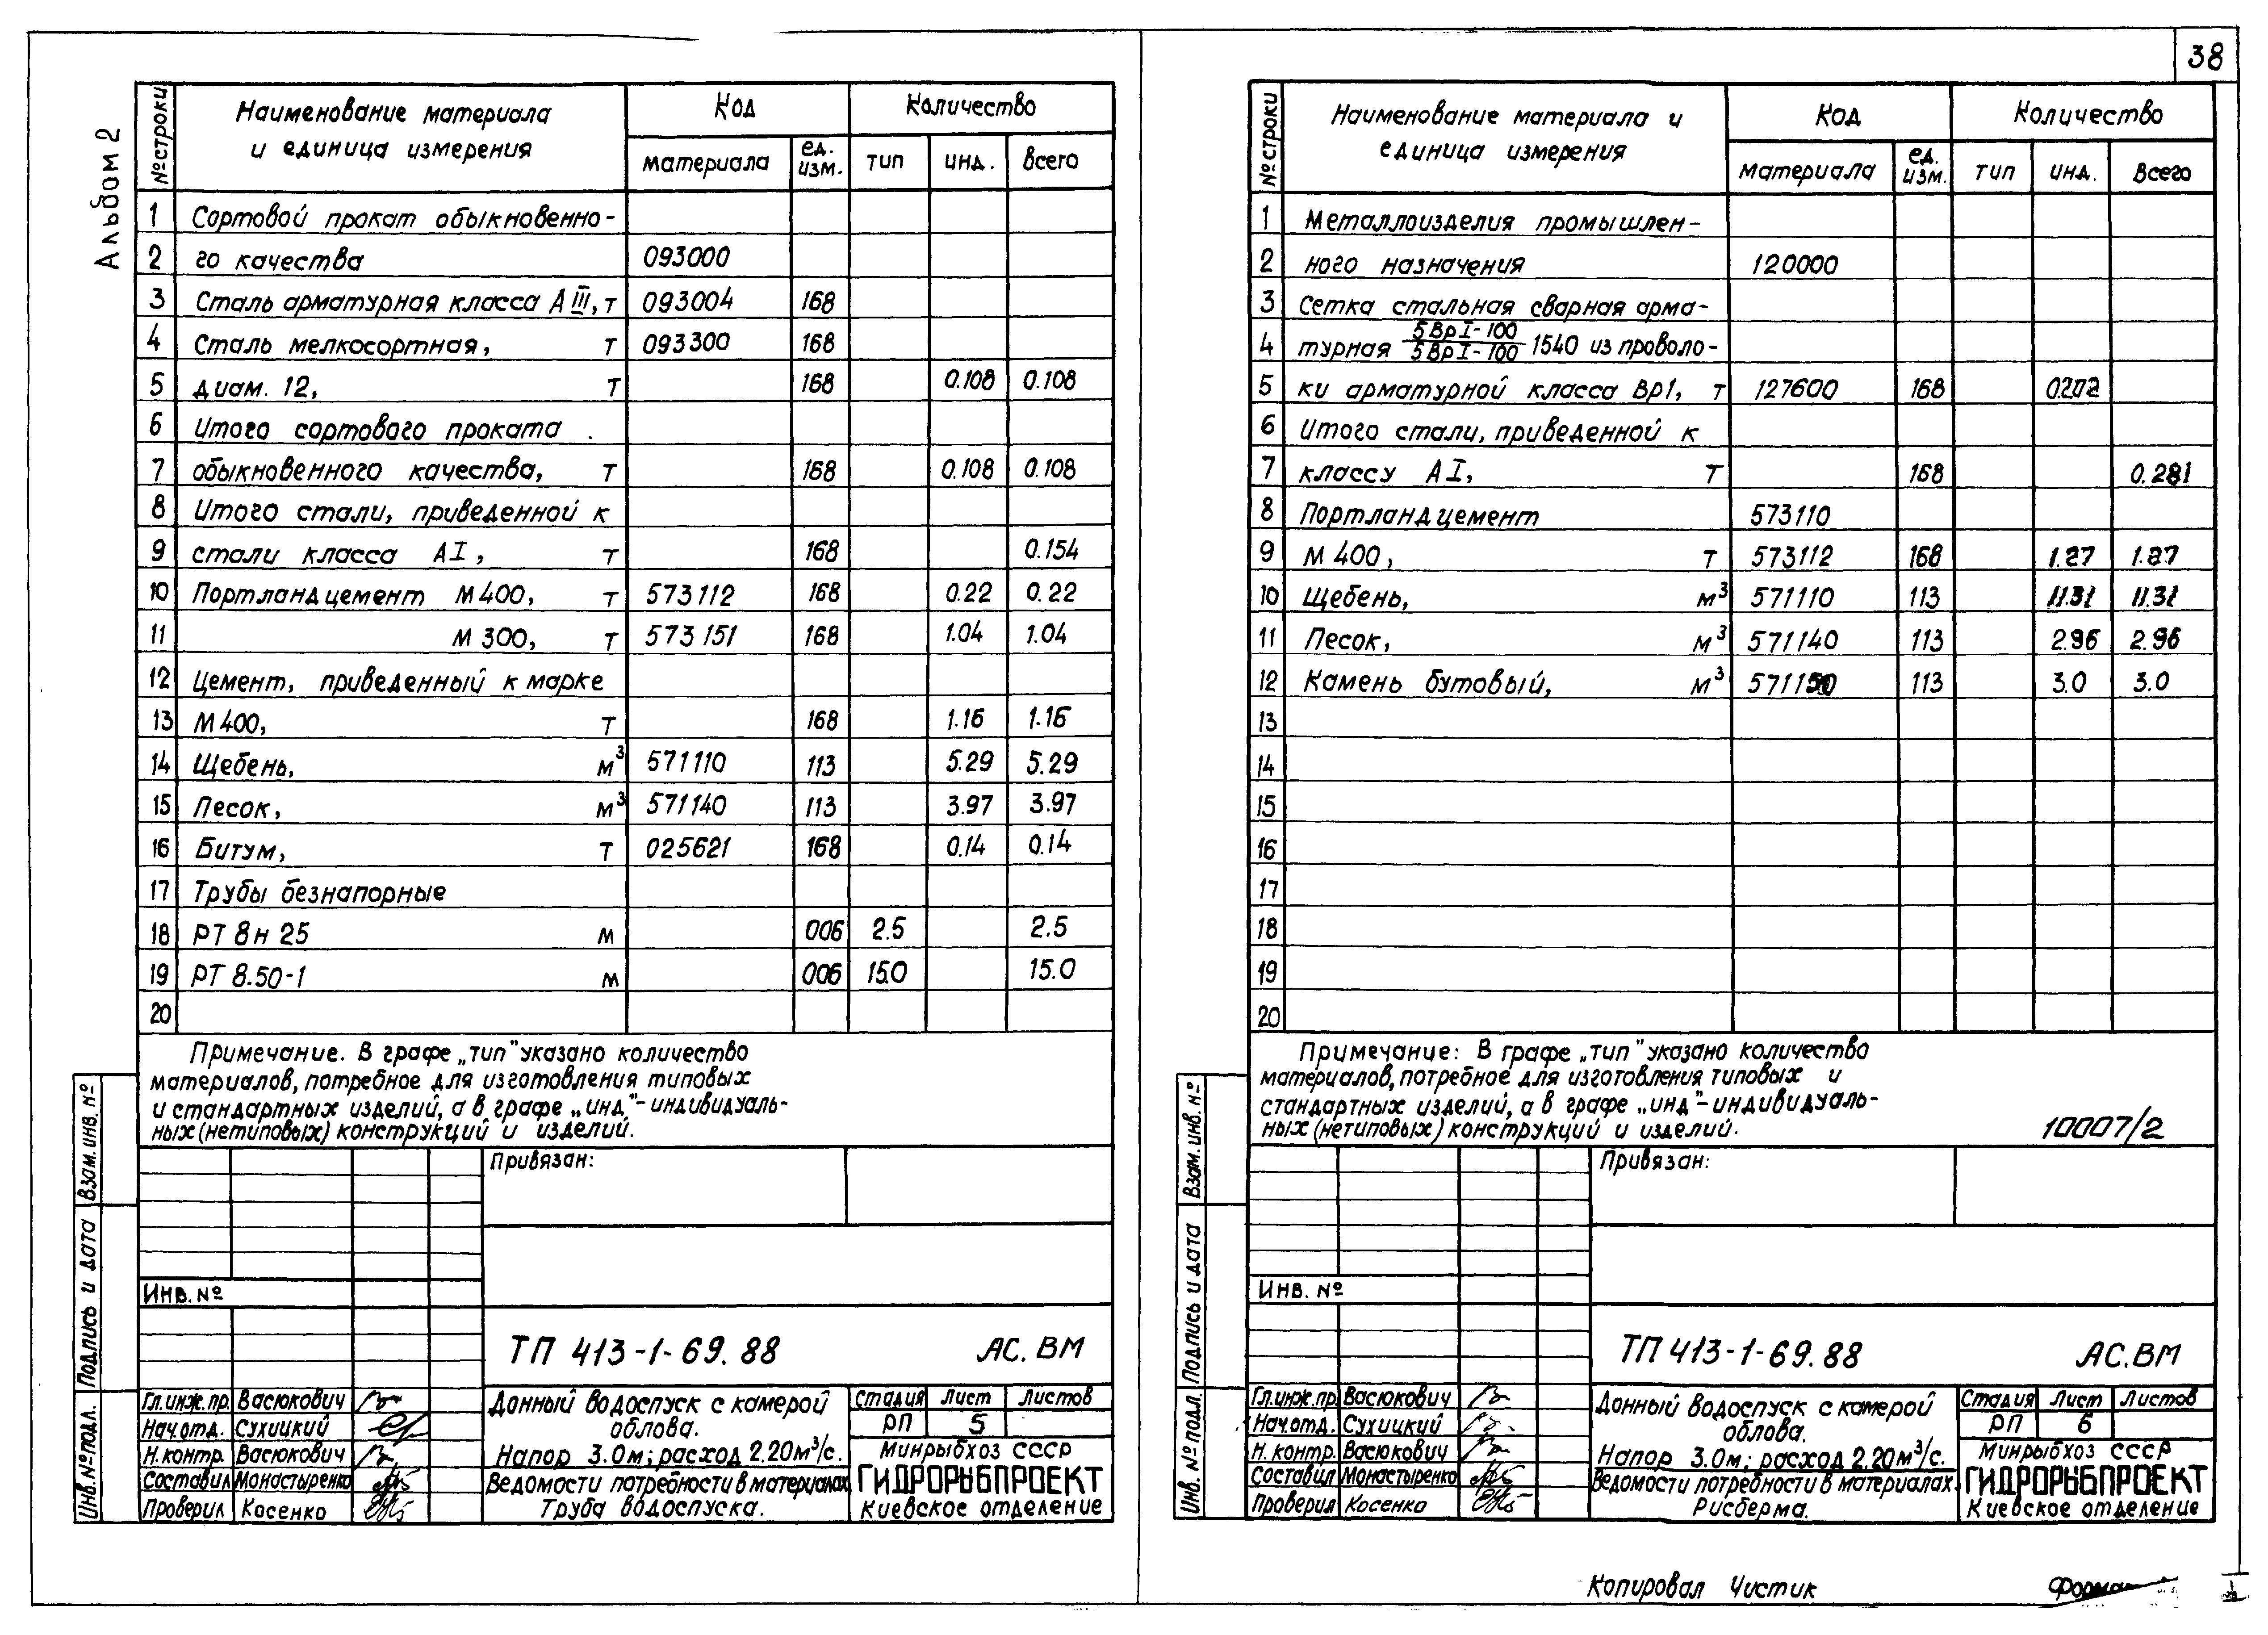 38
Альбом 2
№ строки
Наименование материала
и единица измерения
Код
Количество
материала
ед. изм.
тип
инд.
всего
1 Сортовой прокат обыкновенно-
2 го качества 093000
3 Сталь арматурная класса А III, т 093004 168
4 Сталь мелкосортная, т 093300 168
5 диам. 12, т 168 0.108 0.108
6 Итого сортового проката
7 обыкновенного качества, т 168 0.108 0.108
8 Итого стали, приведенной к
9 стали класса А I, т 168 0.154
10 Портландцемент М 400, т 573112 168 0.22 0.22
11 М 300, т 573151 168 1.04 1.04
12 Цемент, приведенный к марке
13 М 400, т 168 1.16 1.16
14 Щебень, м³ 571110 113 5.29 5.29
15 Песок, м³ 571140 113 3.97 3.97
16 Битум, т 025621 168 0.14 0.14
17 Трубы безнапорные
18 РТ 8н 25 м 006 2.5 2.5
19 РТ 8.50-1 м 006 15.0 15.0
20
Примечание. В графе „тип" указано количество
материалов, потребное для изготовления типовых
и стандартных изделий, а в графе „инд."-индивидуаль-
ных (нетиповых) конструкций и изделий.
Привязан:
Инв. №
ТП 413-1-69.88 АС. ВМ
Гл.инж.пр. Васюкович
Нач.отд. Сухицкий
Н.контр. Васюкович
Составил Монастыренко
Проверил Косенко
Донный водоспуск с камерой
облова.
Напор 3.0м; расход 2.20м³/с.
Ведомости потребности в материалах
Труба водоспуска.
Стадия Лист Листов
РП 5
Минрыбхоз СССР
ГИДРОРЫБПРОЕКТ
Киевское отделение
Взам. инв. №
Подпись и дата
Инв. № подл.
№ строки
Наименование материала и
единица измерения
Код
Количество
материала
ед. изм.
тип
инд.
всего
1 Металлоизделия промышлен-
2 ного назначения 120000
3 Сетка стальная сварная арма-
4 турная 5ВрI-100/5ВрI-100 1540 из проволо-
5 ки арматурной класса Вр1, т 127600 168
6 Итого стали, приведенной к
7 классу А I, т 168 0.281
8 Портландцемент 573110
9 М 400, т 573112 168 1.27 1.27
10 Щебень, м³ 571110 113 11.31 11.31
11 Песок, м³ 571140 113 2.96 2.96
12 Камень бутовый, м³ 571150 113 3.0 3.0
13
14
15
16
17
18
19
20
Примечание: В графе „тип" указано количество
материалов, потребное для изготовления типовых и
стандартных изделий, а в графе „инд"-индивидуаль-
ных (нетиповых) конструкций и изделий.
10007/2
Привязан:
Инв. №
ТП 413-1-69.88 АС.ВМ
Гл.инж.пр. Васюкович
Нач.отд. Сухицкий
Н.контр. Васюкович
Составил Монастыренко
Проверил Косенко
Донный водоспуск с камерой
облова.
Напор 3.0м; расход 2.20м³/с.
Ведомости потребности в материалах.
Рисберма.
Стадия Лист Листов
РП 6
Минрыбхоз СССР
ГИДРОРЫБПРОЕКТ
Киевское отделение
Взам. инв. №
Подпись и дата
Инв. № подл.
Копировал Чистик